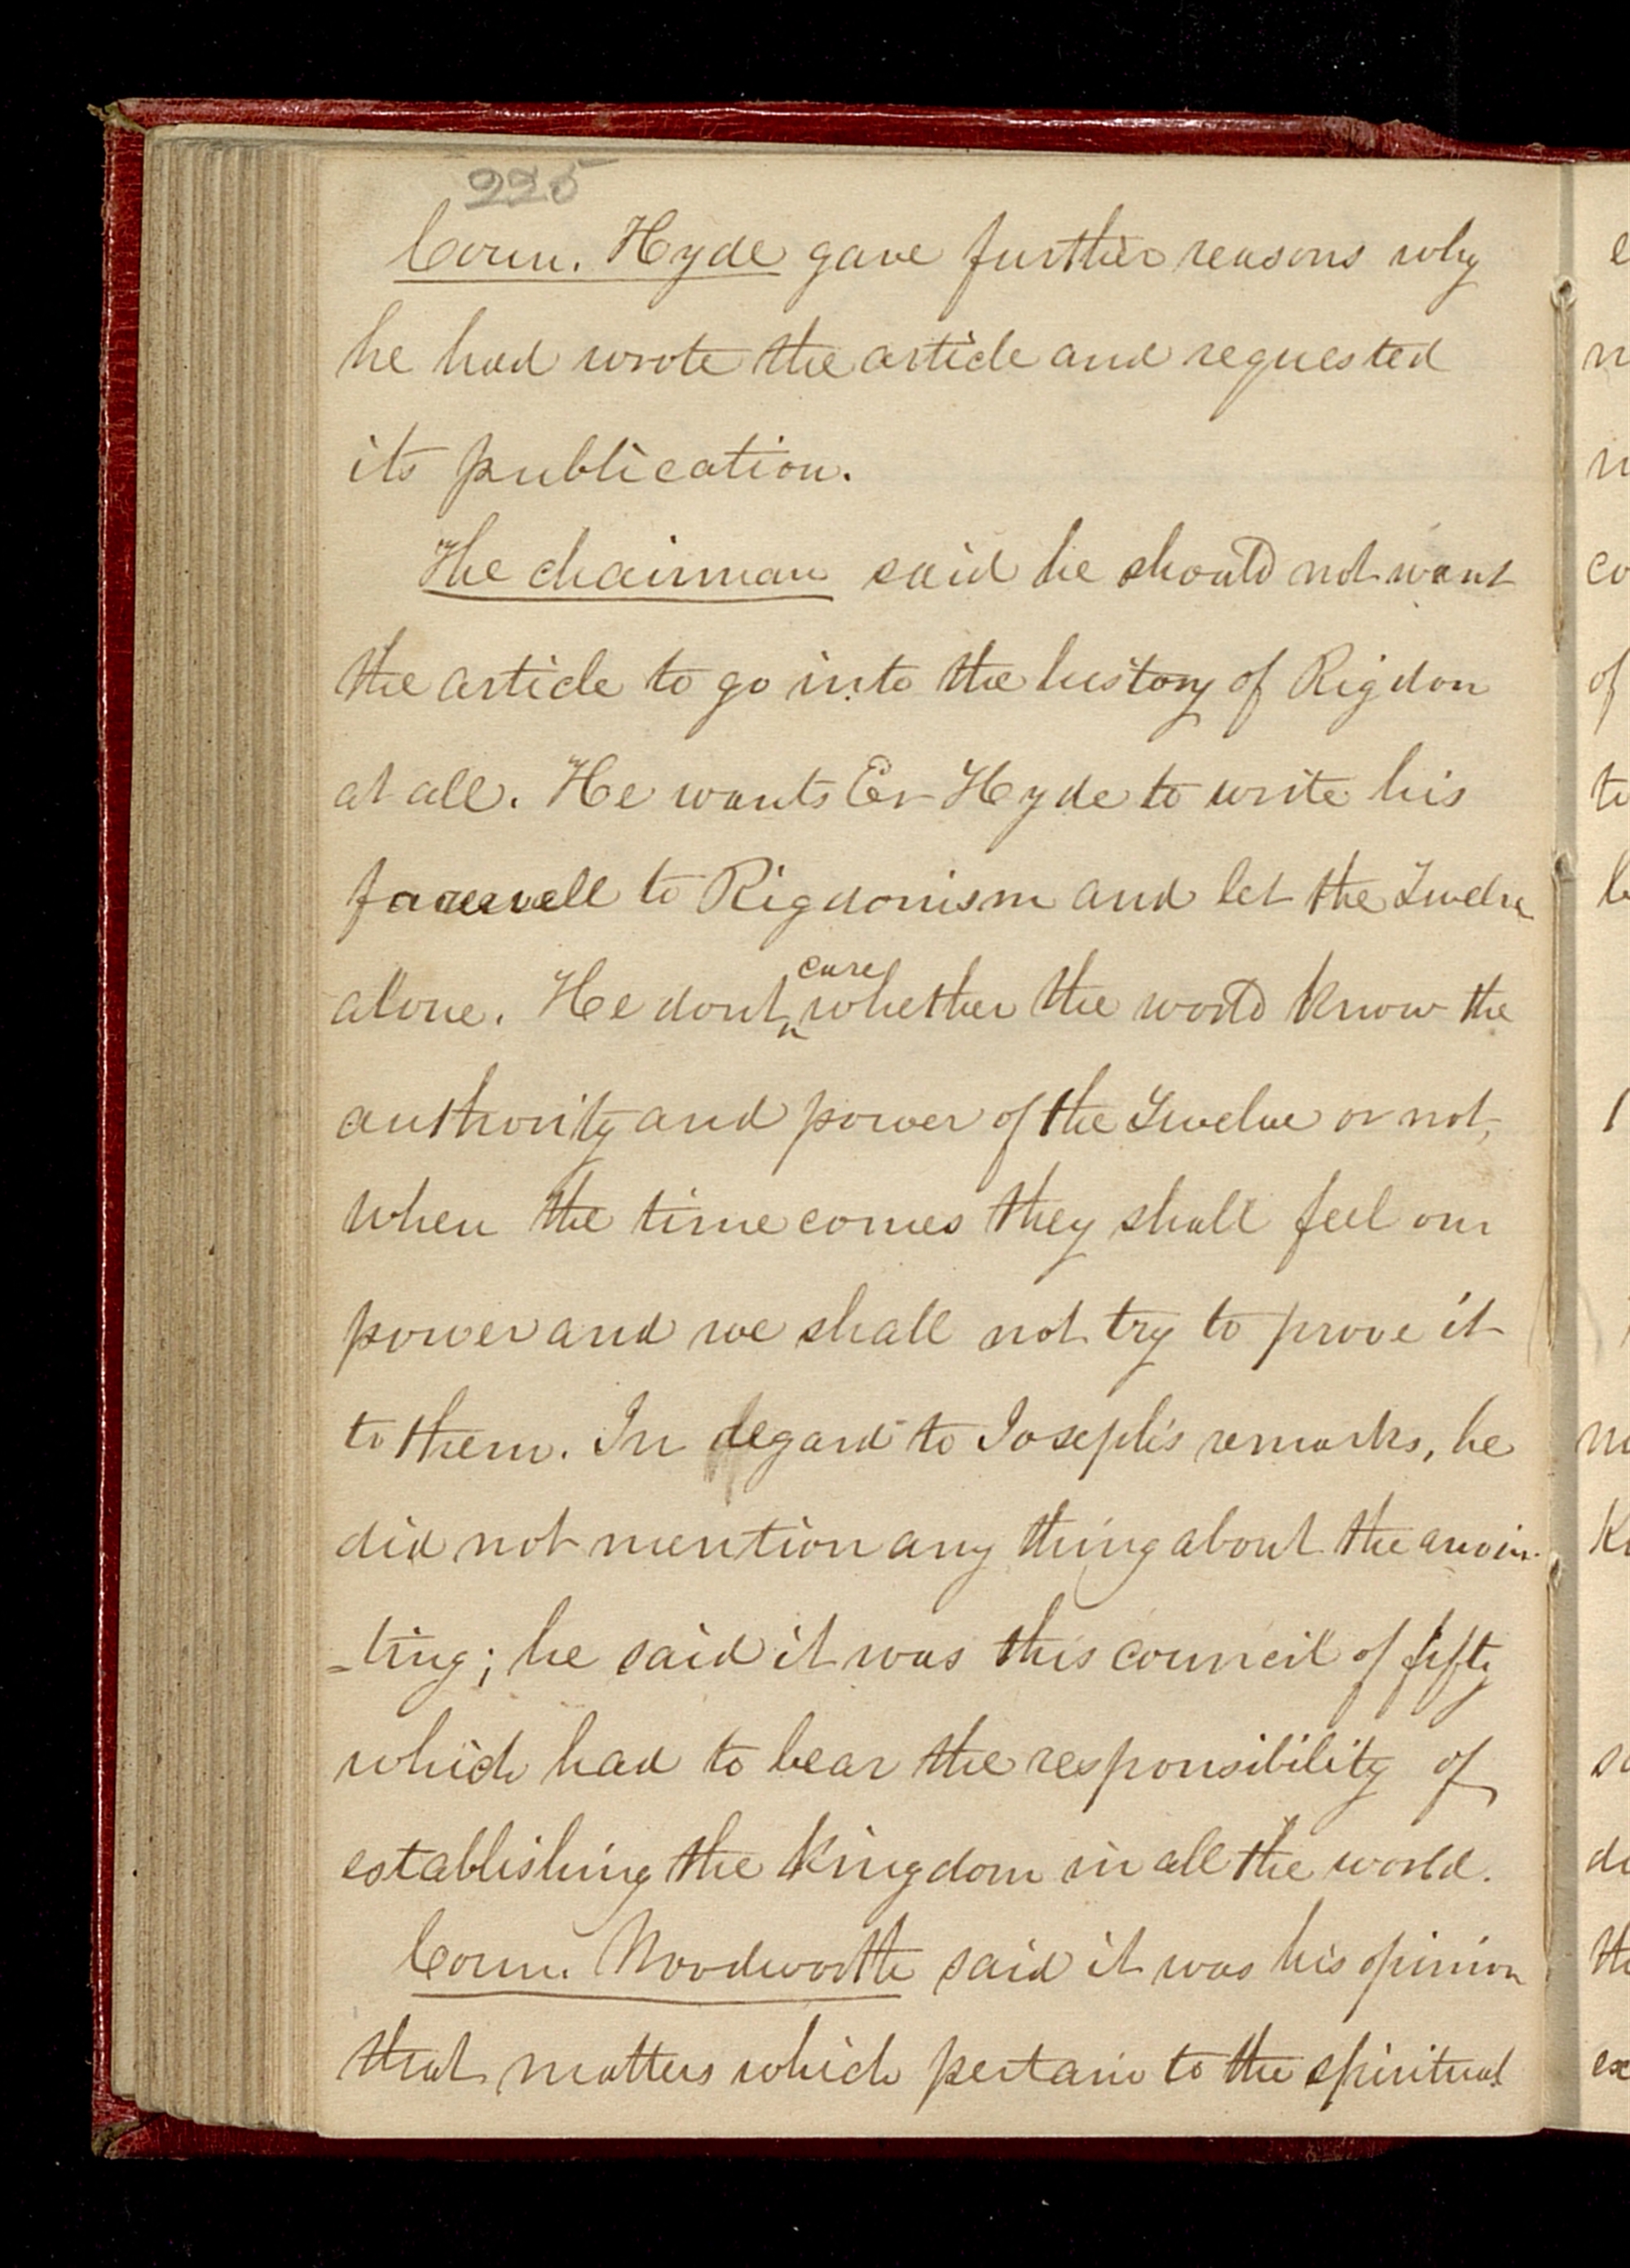 225
Coun. Hyde gave further reasons why
he had wrote the article and requested
its publication.
The chairman said he should not want
the article to go into the history of Rigdon
at all. He wants Er Hyde to write his
farewell to Rigdonism and let the Twelve
alone. He dont care whether the world know the
authority and power of the Twelve or not,
when the time comes they shall feel our
power and we shall not try to prove it
to them. In regard to Joseph's remarks, he
did not mention any thing about the anoin-
-ting; he said it was this council of fifty
which had to bear the responsibility of
establishing the kingdom in all the world.
Coun. Woodworth said it was his opinion
that matters which pertain to the spiritual